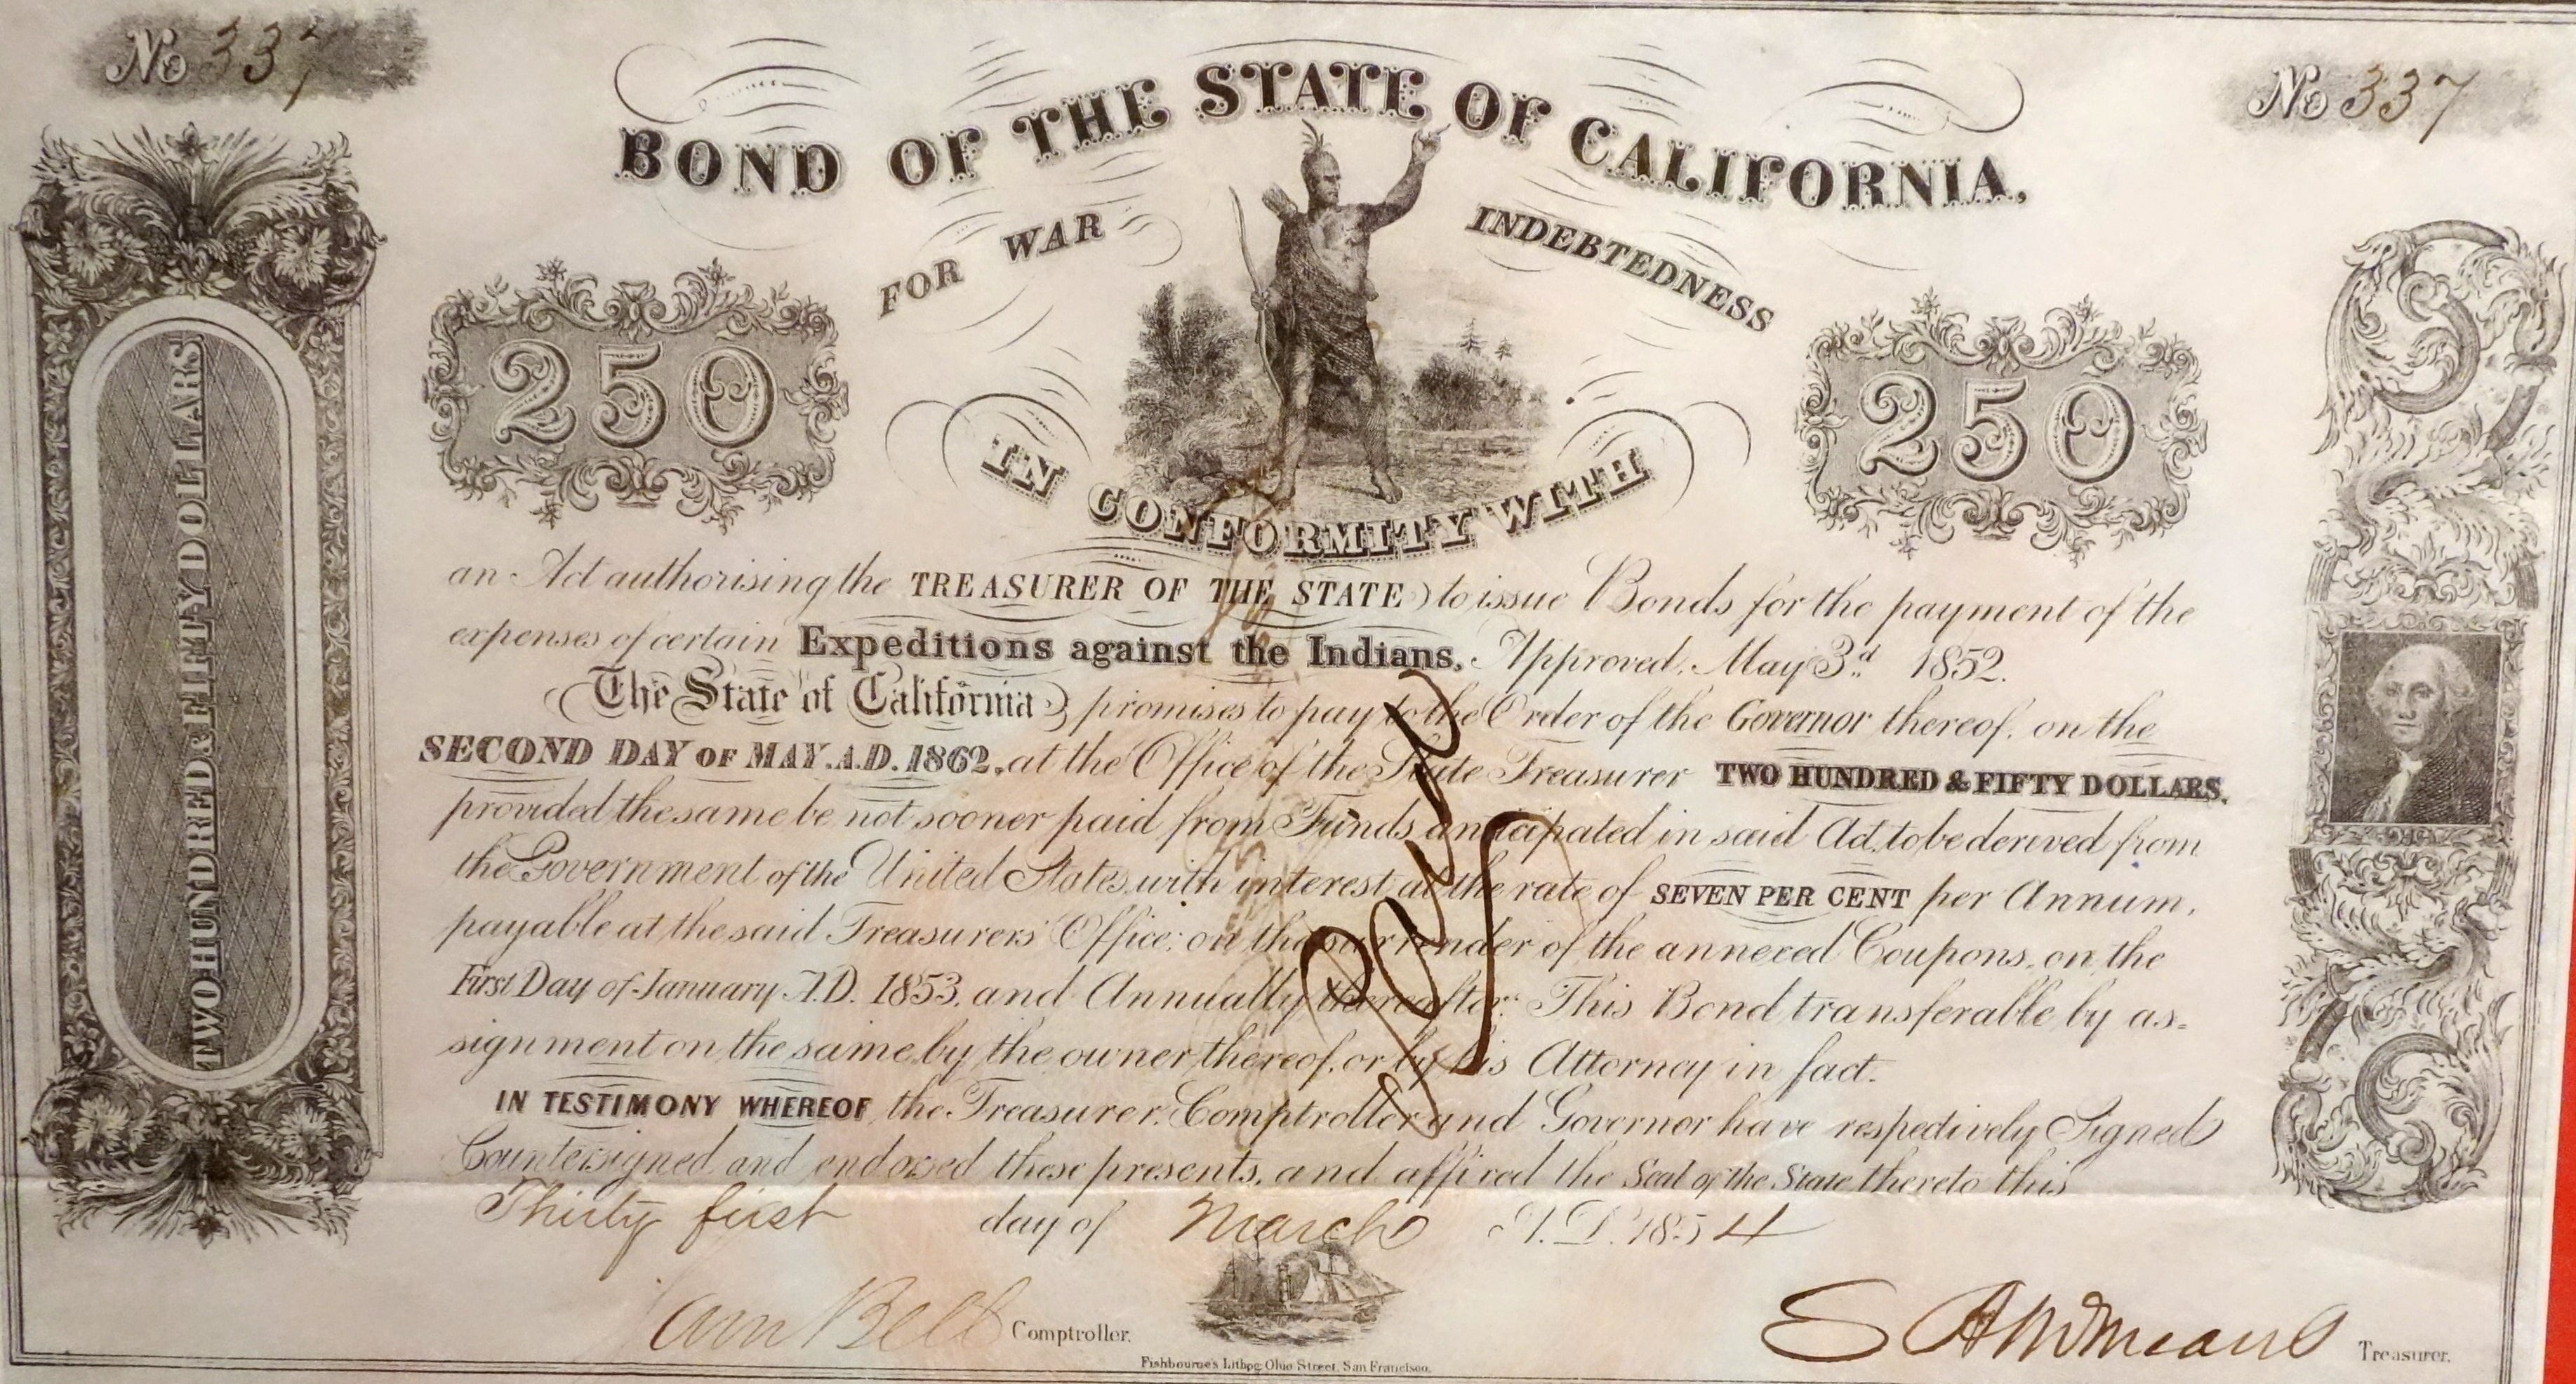 No 337
No 337
BOND OF THE STATE OF CALIFORNIA.
FOR WAR INDEBTEDNESS
250
250
TWO HUNDRED & FIFTY DOLLARS
IN CONFORMITY WITH
an Act authorising the TREASURER OF THE STATE to issue Bonds for the payment of the
expenses of certain Expeditions against the Indians. Approved, May 3d 1852.
The State of California promises to pay to the Order of the Governor thereof, on the
SECOND DAY OF MAY. A.D. 1862, at the Office of the State Treasurer TWO HUNDRED & FIFTY DOLLARS,
provided the same be not sooner paid from Funds anticipated in said Act, to be derived from
the Government of the United States, with interest at the rate of SEVEN PER CENT per Annum,
payable at the said Treasurers' Office; on the surrender of the annexed Coupons, on the
First Day of January A.D. 1853, and Annually thereafter. This Bond transferable by as=
signment on the same, by the owner thereof, or by his Attorney in fact.
IN TESTIMONY WHEREOF, the Treasurer, Comptroller and Governor have respectively Signed
Countersigned and endorsed these presents, and affixed the Seal of the State thereto this
Thirty first day of March A.D. 1854
Bell Comptroller.
Treasurer.
Fishbourne's Lithog: Ohio Street, San Francisco.